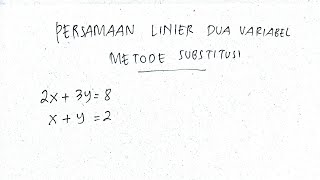 PERSAMAAN LINIER DUA VARIABEL
METODE SUBSTITUSI
2x + 3y = 8
x + y = 2